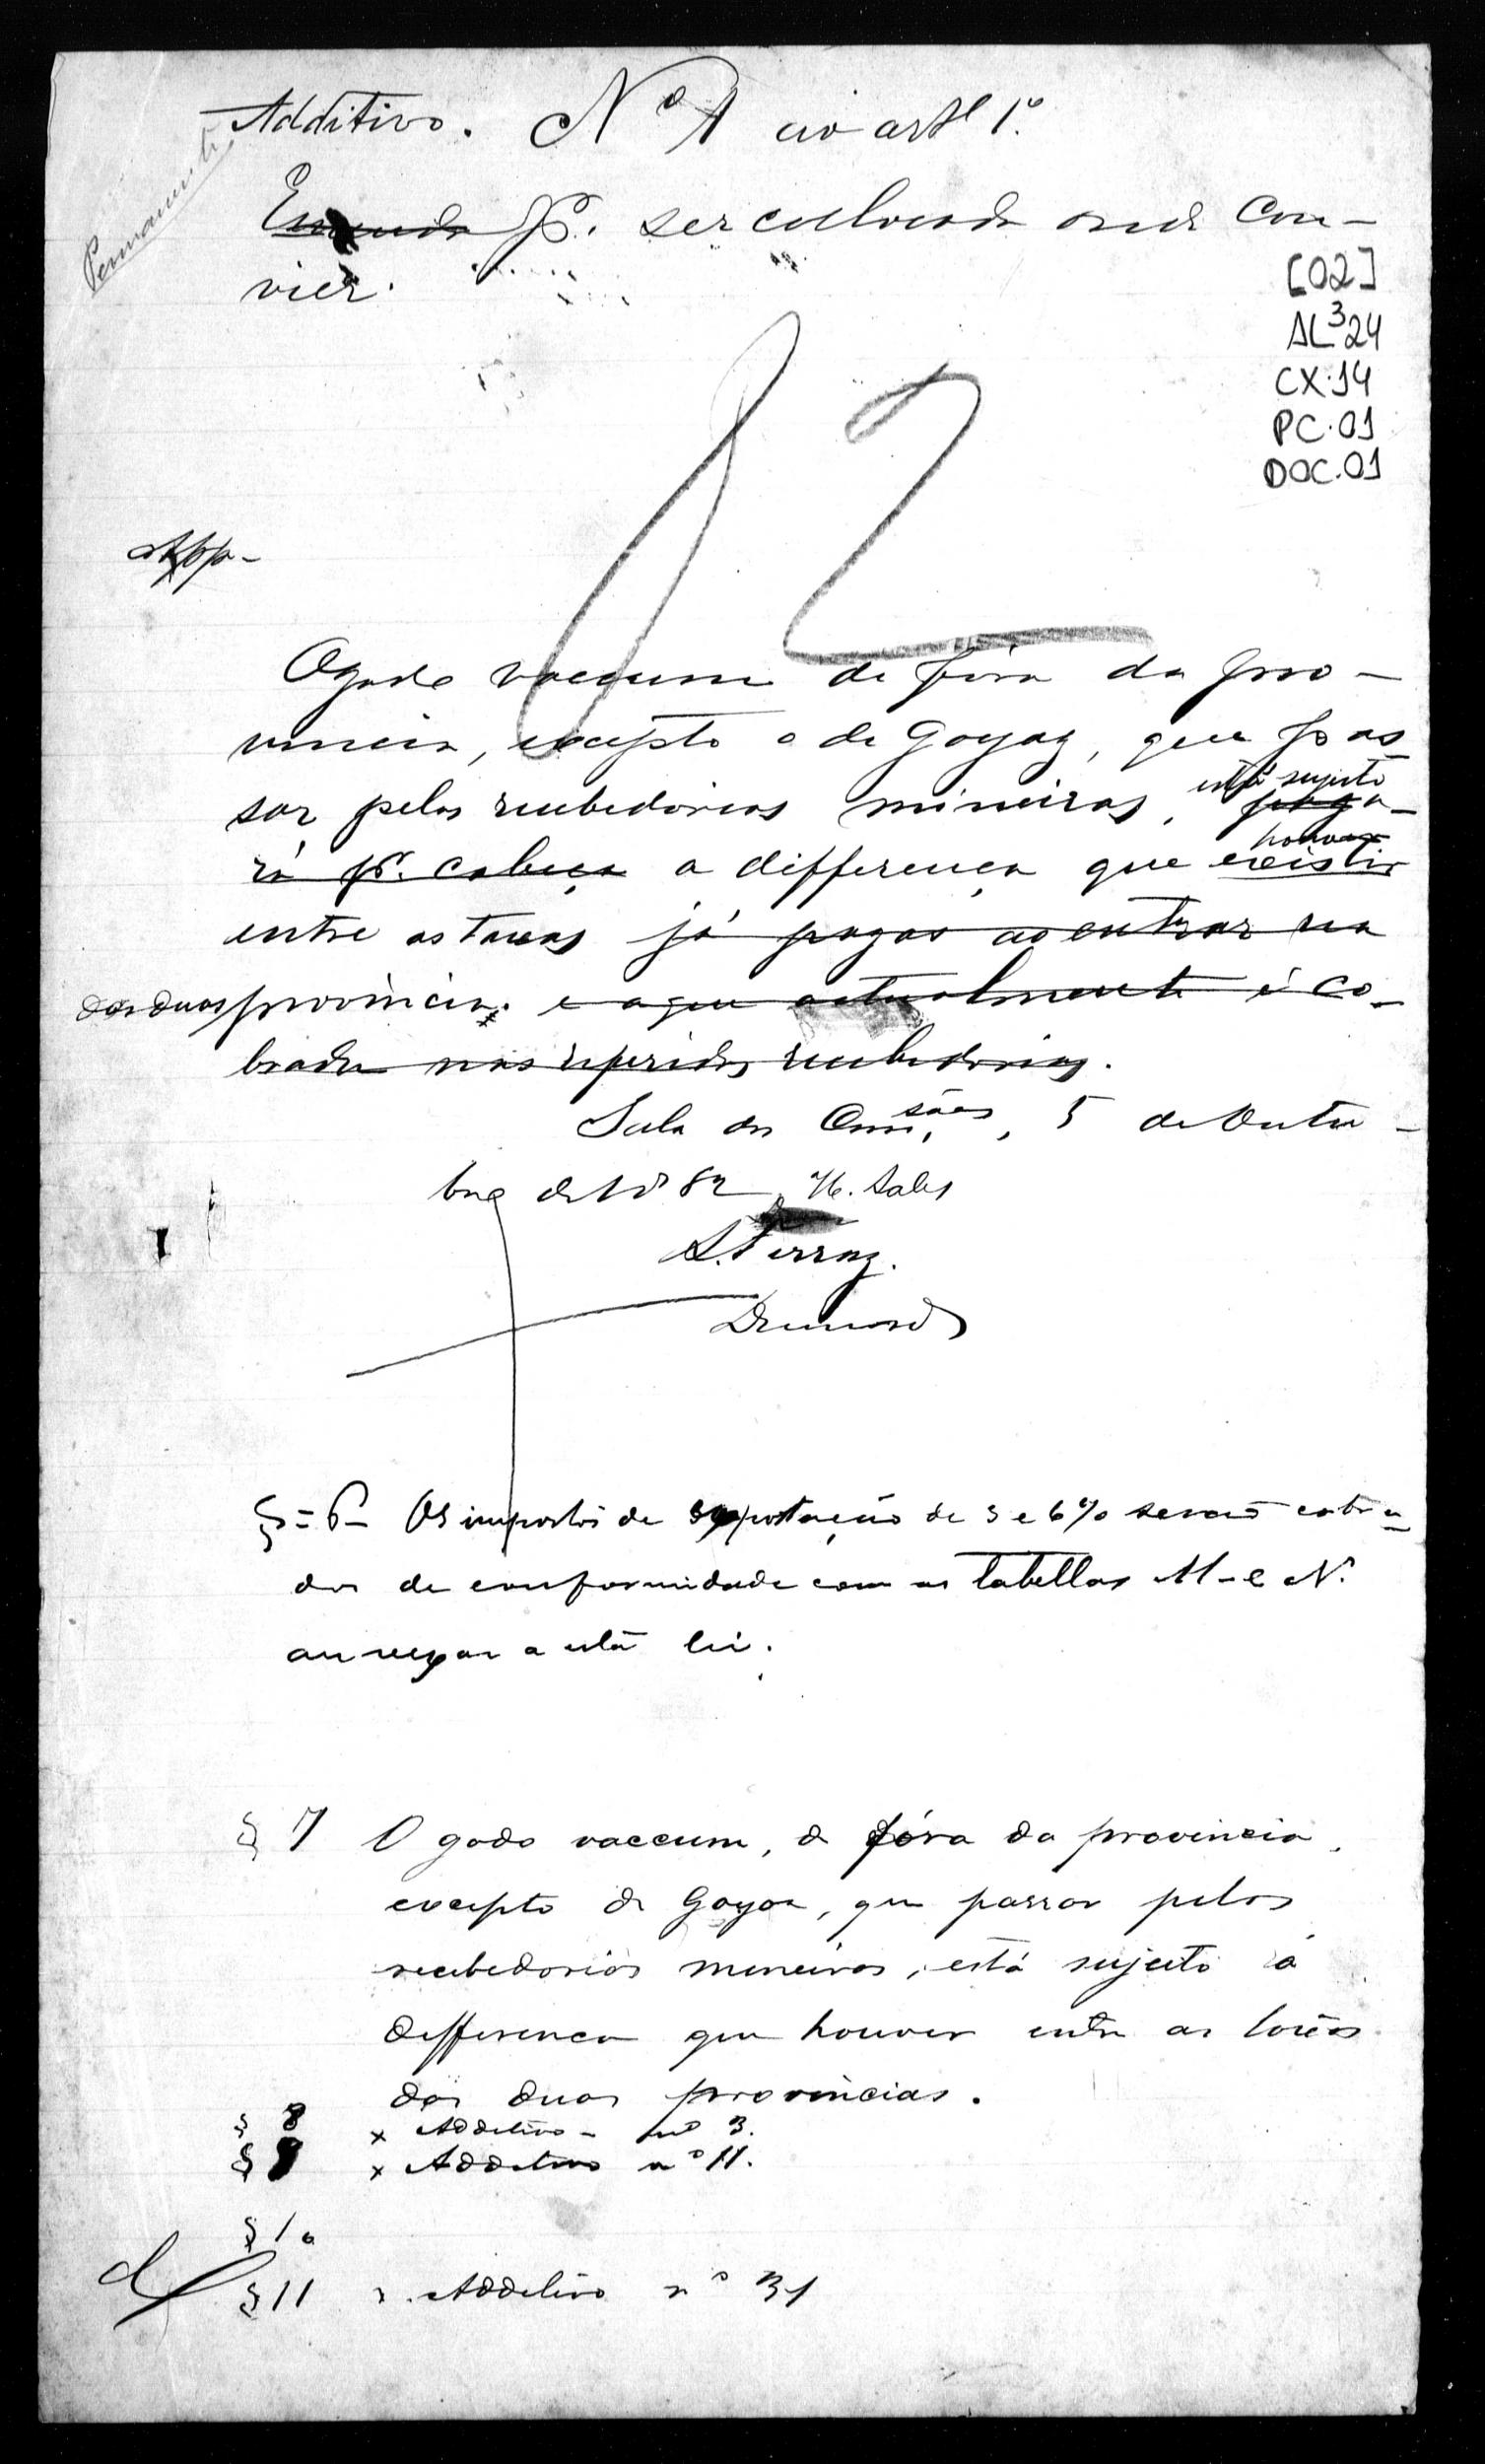 Additivo. Nº 1 ao artº 1º.
Permanente
Emenda pª. ser collocada onde con-
vier.
[02]
AL³24
CX.14
PC.01
DOC.01
12
App-
O gado vaccum de fóra da pro-
vincia, excepto o de Goyaz, que pas-
sar pelas recebedorias mineiras, paga-
está sujeito
rá pr. cabeça a differença que existir
houver
entre as taxas já pagas ao entrar na
das duas provincias. e a que actualmente é co-
brada nas referidas recebedorias.
Sala das Commissões, 5 de Outu-
bro de 1882
S. Ferraz.
Drumond
§=6- Os impostos de exportação de 3 e 6% serão cobra-
dos de conformidade com as tabellas M-e N.
annexas a esta lei.
§ 7 O gado vaccum, de fóra da provincia,
excepto de Goyaz, que passar pelas
recebedorias mineiras, está sujeito á
differença que houver entre as taxas
das duas provincias.
§ 8 x Additivo - nº 3.
§ 9 x Additivo nº 11.
§ 10
§ 11 x. Additivo nº 31